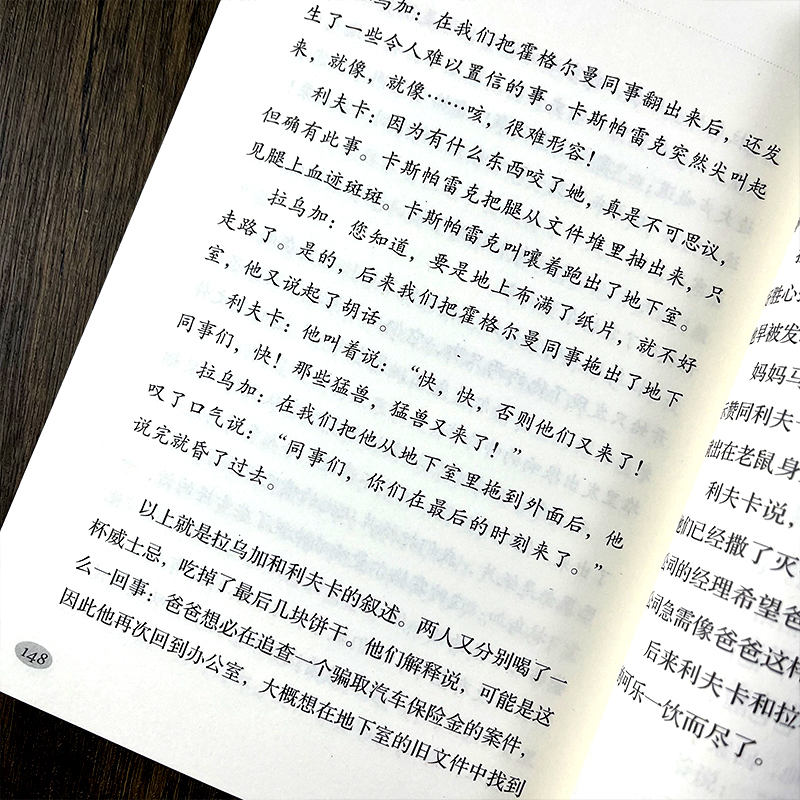 拉乌加：在我们把霍格尔曼同事翻出来后，还发
生了一些令人难以置信的事。卡斯帕雷克突然尖叫起
来，就像，就像……咳，很难形容！
利夫卡：因为有什么东西咬了她，真是不可思议，
但确有此事。卡斯帕雷克把腿从文件堆里抽出来，只
见腿上血迹斑斑。卡斯帕雷克叫嚷着跑出了地下室。
拉乌加：您知道，要是地上布满了纸片，就不好
走路了。是的，后来我们把霍格尔曼同事拖出了地下
室，他又说起了胡话。
利夫卡：他叫着说：“快，快，否则他们又来了！
同事们，快！那些猛兽，猛兽又来了！”
拉乌加：在我们把他从地下室里拖到外面后，他
叹了口气说：“同事们，你们在最后的时刻来了。”
说完就昏了过去。
以上就是拉乌加和利夫卡的叙述。两人又分别喝了一
杯威士忌，吃掉了最后几块饼干。他们解释说，可能是这
么一回事：爸爸想必在追查一个骗取汽车保险金的案件，
因此他再次回到办公室，大概想在地下室的旧文件中找到
148
胜心
早被发
妈妈马
赞同利夫
出在老鼠身
利夫卡说，
们已经撒了灭
司的经理希望爸
司急需像爸爸这样
后来利夫卡和拉
可乐一饮而尽了。